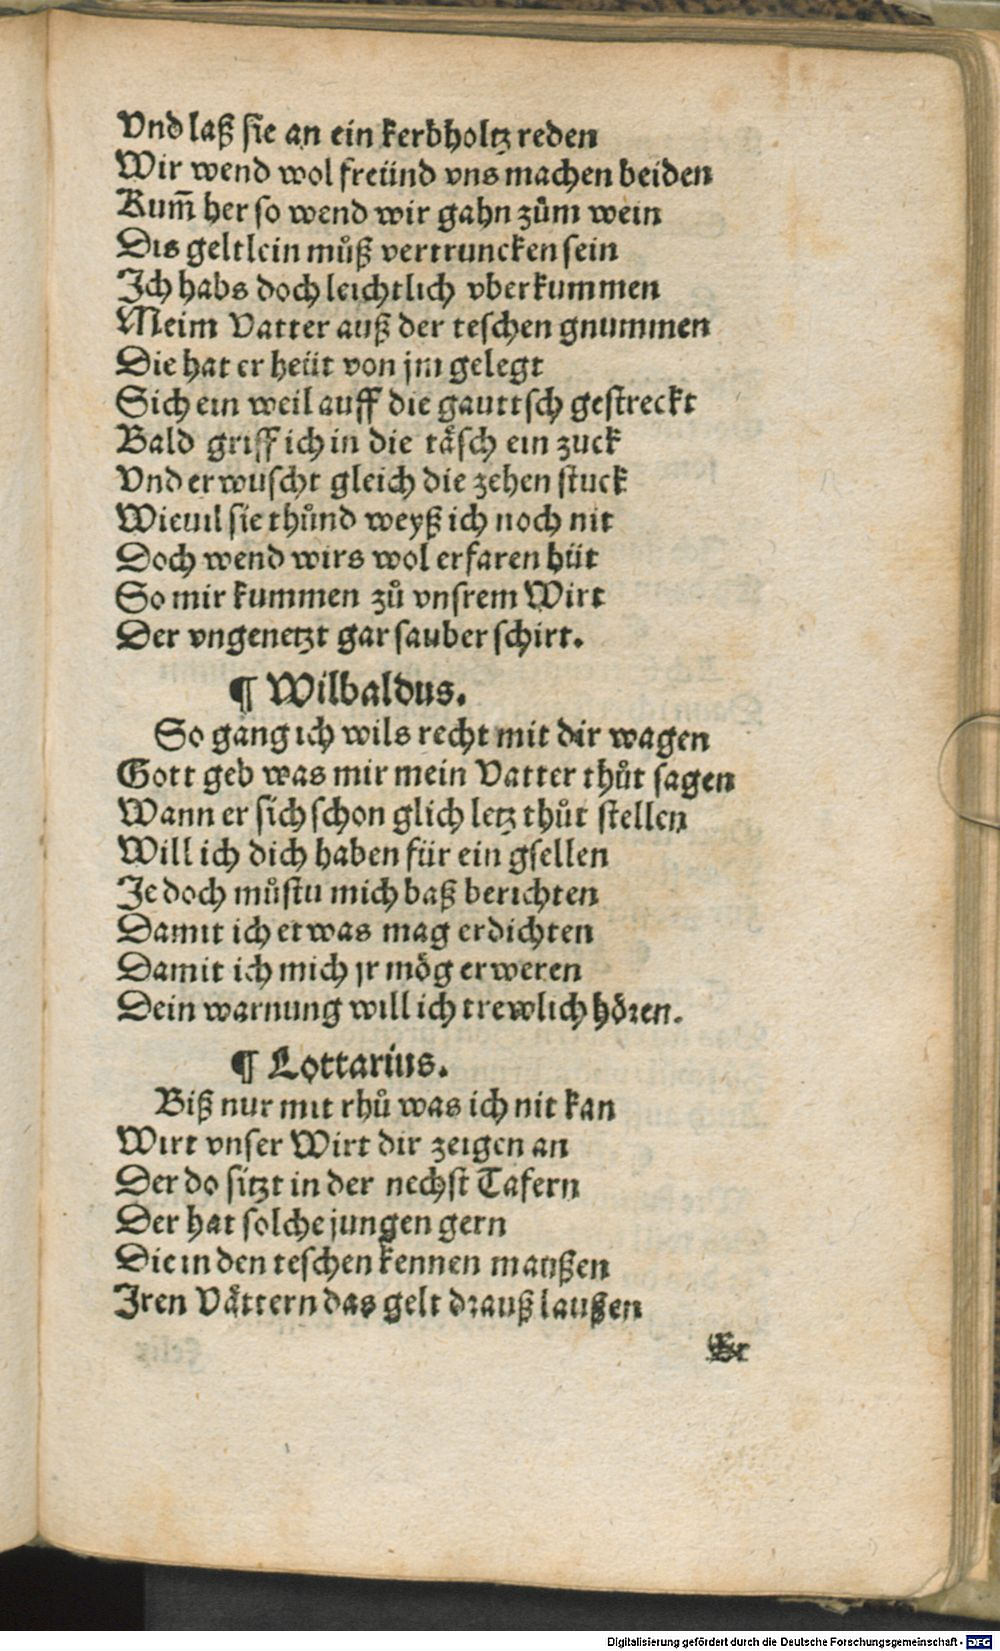 Vnd laß sie an ein kerbholtz reden
Wir wend wol freünd vns machen beiden
Kum̃ her so wend wir gahn zům wein
Dis geltlein můß vertruncken sein
Ich habs doch leichtlich vberkummen
Meim Vatter auß der teschen gnummen
Die hat er heüt von jm gelegt
Sich ein weil auff die gauttsch gestreckt
Bald griff ich in die tåsch ein zuck
Vnd erwuscht gleich die zehen stuck
Wieuil sie thůnd weyß ich noch nit
Doch wend wirs wol erfaren hüt
So mir kummen zů vnsrem Wirt
Der vngenetzt gar sauber schirt.
¶ Wilbaldus.
So gang ich wils recht mit dir wagen
Gott geb was mir mein Vatter thůt sagen
Wann er sich schon glich letz thůt stellen
Will ich dich haben für ein gsellen
Je doch můstu mich baß berichten
Damit ich etwas mag erdichten
Damit ich mich jr mög erweren
Dein warnung will ich trewlich hören.
¶ Lottarius.
Biß nur mit rhů was ich nit kan
Wirt vnser Wirt dir zeigen an
Der do sitzt in der nechst Tafern
Der hat solche jungen gern
Die in den teschen kennen maußen
Iren Våttern das gelt drauß laußen
Er
Digitalisierung gefördert durch die Deutsche Forschungsgemeinschaft - DFG